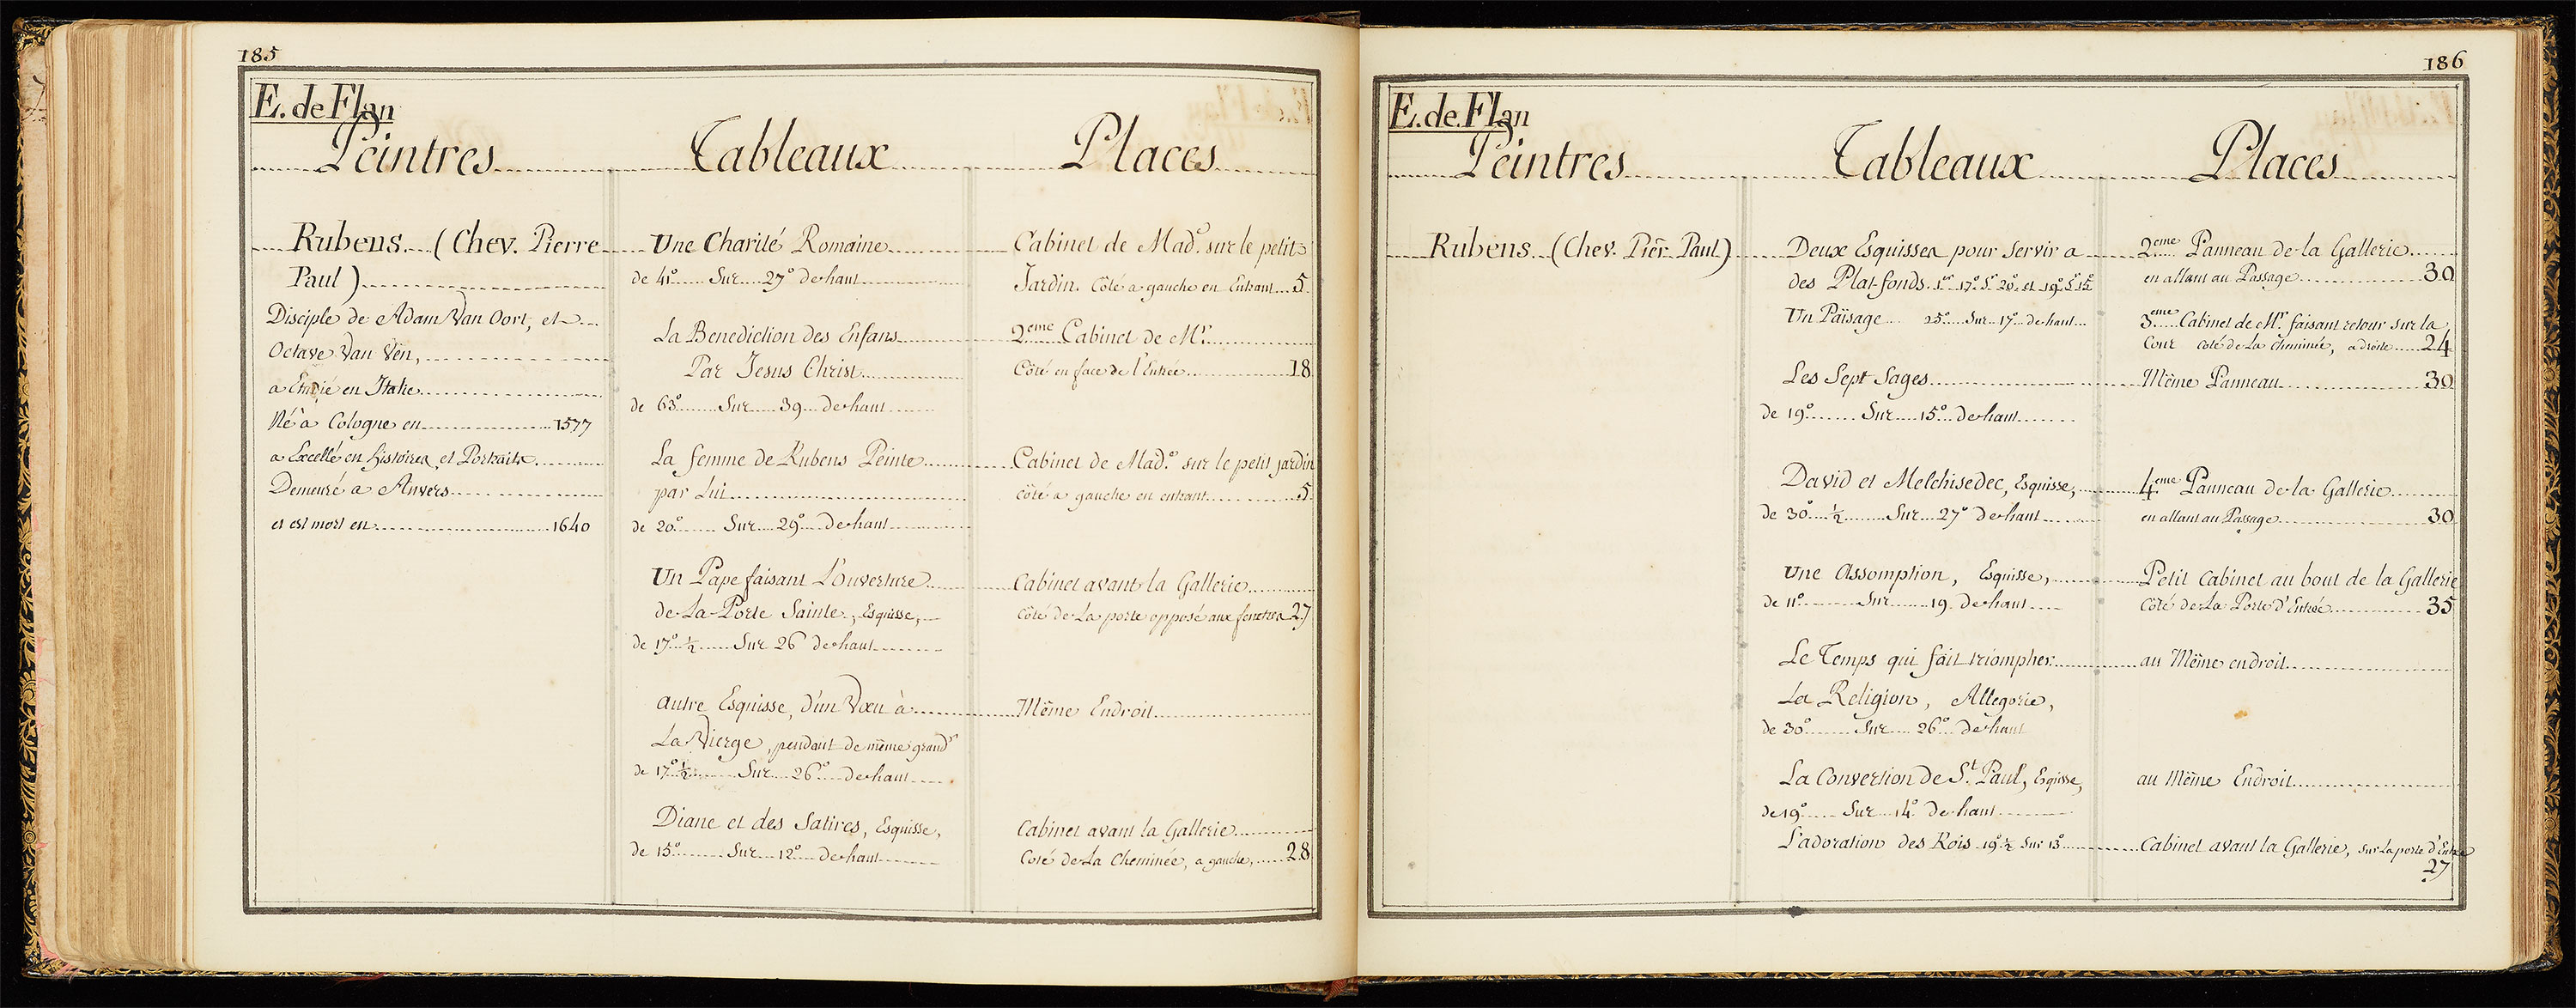 185
E. de Flan
Peintres Tableaux Places
Rubens (Chev. Pierre
Paul)
Disciple de Adam Van Oort, et
Octave Van Ven,
a Etudié en Italie
Né à Cologne en 1577
a Excellé en histoires et Portraits
Demeuré a Anvers
et est mort en 1640
Une Charité Romaine
de 41° Sur 27° de haut
La Benediction des Enfans
Par Jesus Christ
de 63° Sur 39 de haut
La femme de Rubens Peinte
par Lui
de 20° Sur 29° de haut
Un Pape faisant L'ouverture
de La Porte Sainte, Esquisse,
de 17° ½ Sur 26 de haut
autre Esquisse, d'un Vœu à
La Vierge, pendant de même grandr
de 17° ½ Sur 26° de haut
Diane et des Satires, Esquisse,
de 15° Sur 12° de haut
Cabinet de Made. sur le petit
Jardin. Côté a gauche en Entrant 5
2eme Cabinet de Mr
Côté en face de l'Entrée 18
Cabinet de Made. sur le petit jardin
côté a gauche en entrant 5
Cabinet avant la Gallerie
côté de La porte opposé aux fenetres 27
Même Endroit
Cabinet avant la Gallerie
Coté de La Cheminée, a gauche, 28
186
E. de. Flan
Peintres Tableaux Places
Rubens (Chev. Pier. Paul)
Deux Esquisses pour Servir a
des Plat-fonds. 1er 17° Sr 20° et 19° Sr 15°
Un Païsage 25° Sur 17° de haut
Les Sept Sages
de 19° Sur 15° de haut
David et Melchisedec, Esquisse,
de 30° ½ Sur 27° de haut
Une Assomption, Esquisse,
de 11° Sur 19 de haut
Le Temps qui fait triompher
La Religion, Allegorie,
de 30° Sur 26° de haut
La Convertion de St. Paul, Esquisse,
de 19° Sur 14° de haut
L'adoration des Rois 19° ½ Sur 13
2eme Panneau de la Gallerie
en allant au Passage 30
3eme Cabinet de Mr. faisant retour sur la
Cour coté de La Cheminée, a droite 24
Même Panneau 30
4eme Panneau de la Gallerie
en allant au Passage 30
Petit Cabinet au bout de la Gallerie
Côté de La Porte d'Entrée 35
au Même endroit
au Même Endroit
Cabinet avant la Gallerie, sur La porte d'Entrée
27